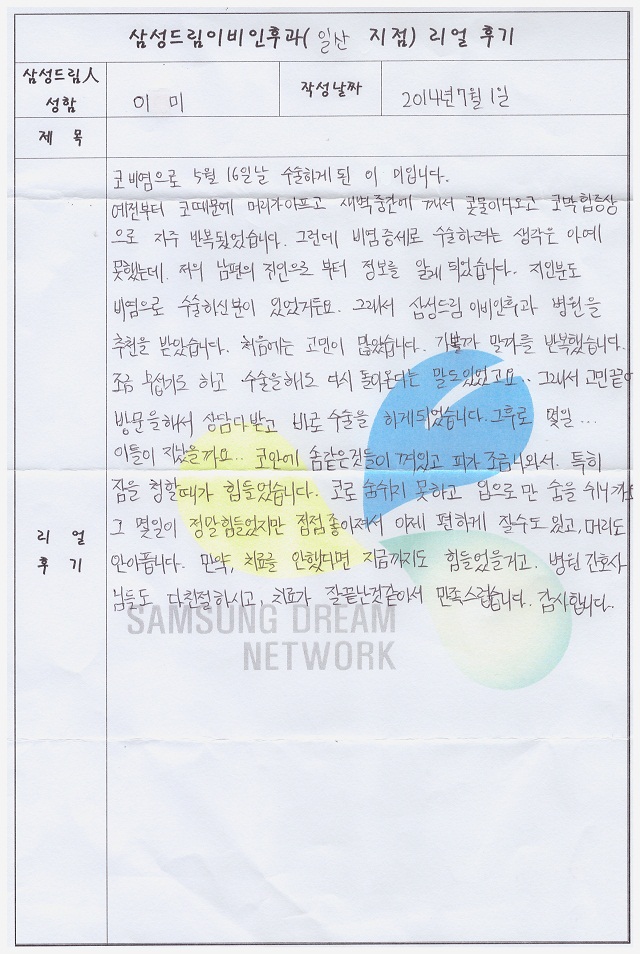 삼성드림이비인후과( 일산 지점) 리얼 후기
삼성드림人 성함
이 미
작성날짜
2014년 7월 1일
제 목
리 얼 후 기
코비염으로 5월 16일날 수술하게 된 이 미입니다.
예전부터 코때문에 머리가아프고 새벽중간에 깨서 콧물이나오고 코막힘증상
으로 자주 반복됬었습니다. 그런데 비염증세로 수술하려는 생각은 아예
못했는데. 저의 남편의 지인으로 부터 정보를 알게 되었습니다. 지인분도
비염으로 수술하신분이 있었거든요. 그래서 삼성드림 이비인후과 병원을
추천을 받았습니다. 처음에는 고민이 많았습니다. 가볼까 말까를 반복했습니다.
조금 무섭기도 하고 수술을해도 다시 돌아온다는 말도있었고요.. 그래서 고민끝에
방문을해서 상담다받고 바로 수술을 하게되었습니다. 그후로 몇일...
이틀이 지났을까요... 코안에 솜같은것들이 껴있고 피가 조금나와서. 특히
잠을 청할때가 힘들었습니다. 코로 숨쉬지 못하고 입으로만 숨을 쉬니까요
그 몇일이 정말힘들었지만 점점좋아져서 이제 편하게 잘수도 있고, 머리도
안아픕니다. 만약, 치료를 안했다면 지금까지도 힘들었을거고. 병원 간호사
님들도 다친절하시고, 치료가 잘끝난것같아서 만족스럽습니다. 감사합니다..
SAMSUNG DREAM
NETWORK